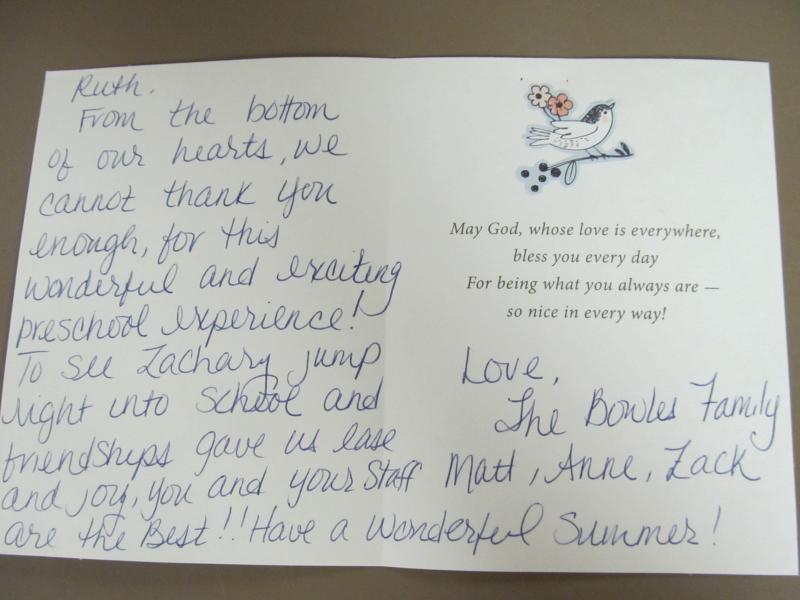 Ruth.
From the bottom
of our hearts, we
cannot thank you
enough, for this
wonderful and exciting
preschool experience!
To see Zachary jump
right into school and
friendships gave us ease
and joy, you and your Staff
are the Best!! Have a wonderful Summer!
May God, whose love is everywhere,
bless you every day
For being what you always are —
so nice in every way!
Love,
The Bowles Family
Matt, Anne, Zack